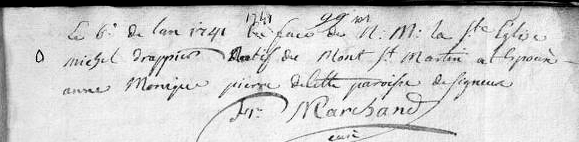 1741 99bre
Le 6e de l'an 1741 en face de N. M. la Ste Eglise
michel drappier Natif de Mont St Martin a Epousé
anne Monique pierre de cette paroisse de signeux
Fr. Marchand
curé